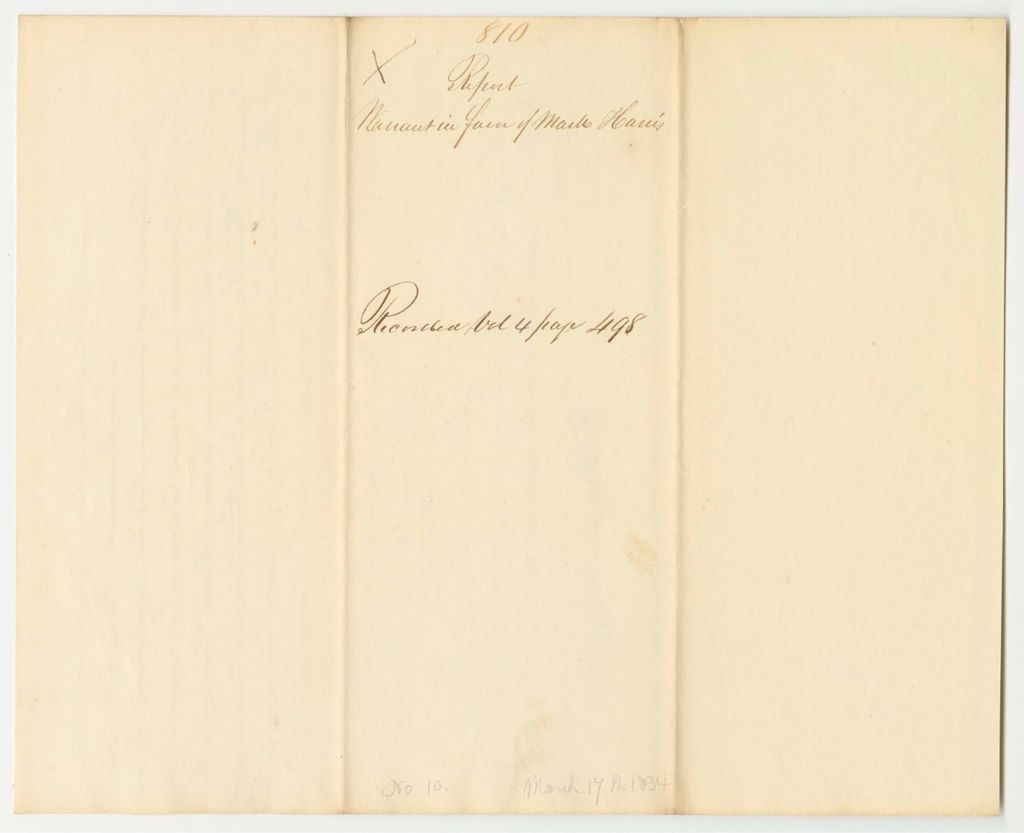 810
X
Report
Warrant in favor of Mark Harris
Recorded Vol 4 page 498
No 10. March 17th 1834